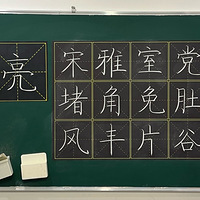 亮
宋雅室党
堵角免肚
风丰片谷